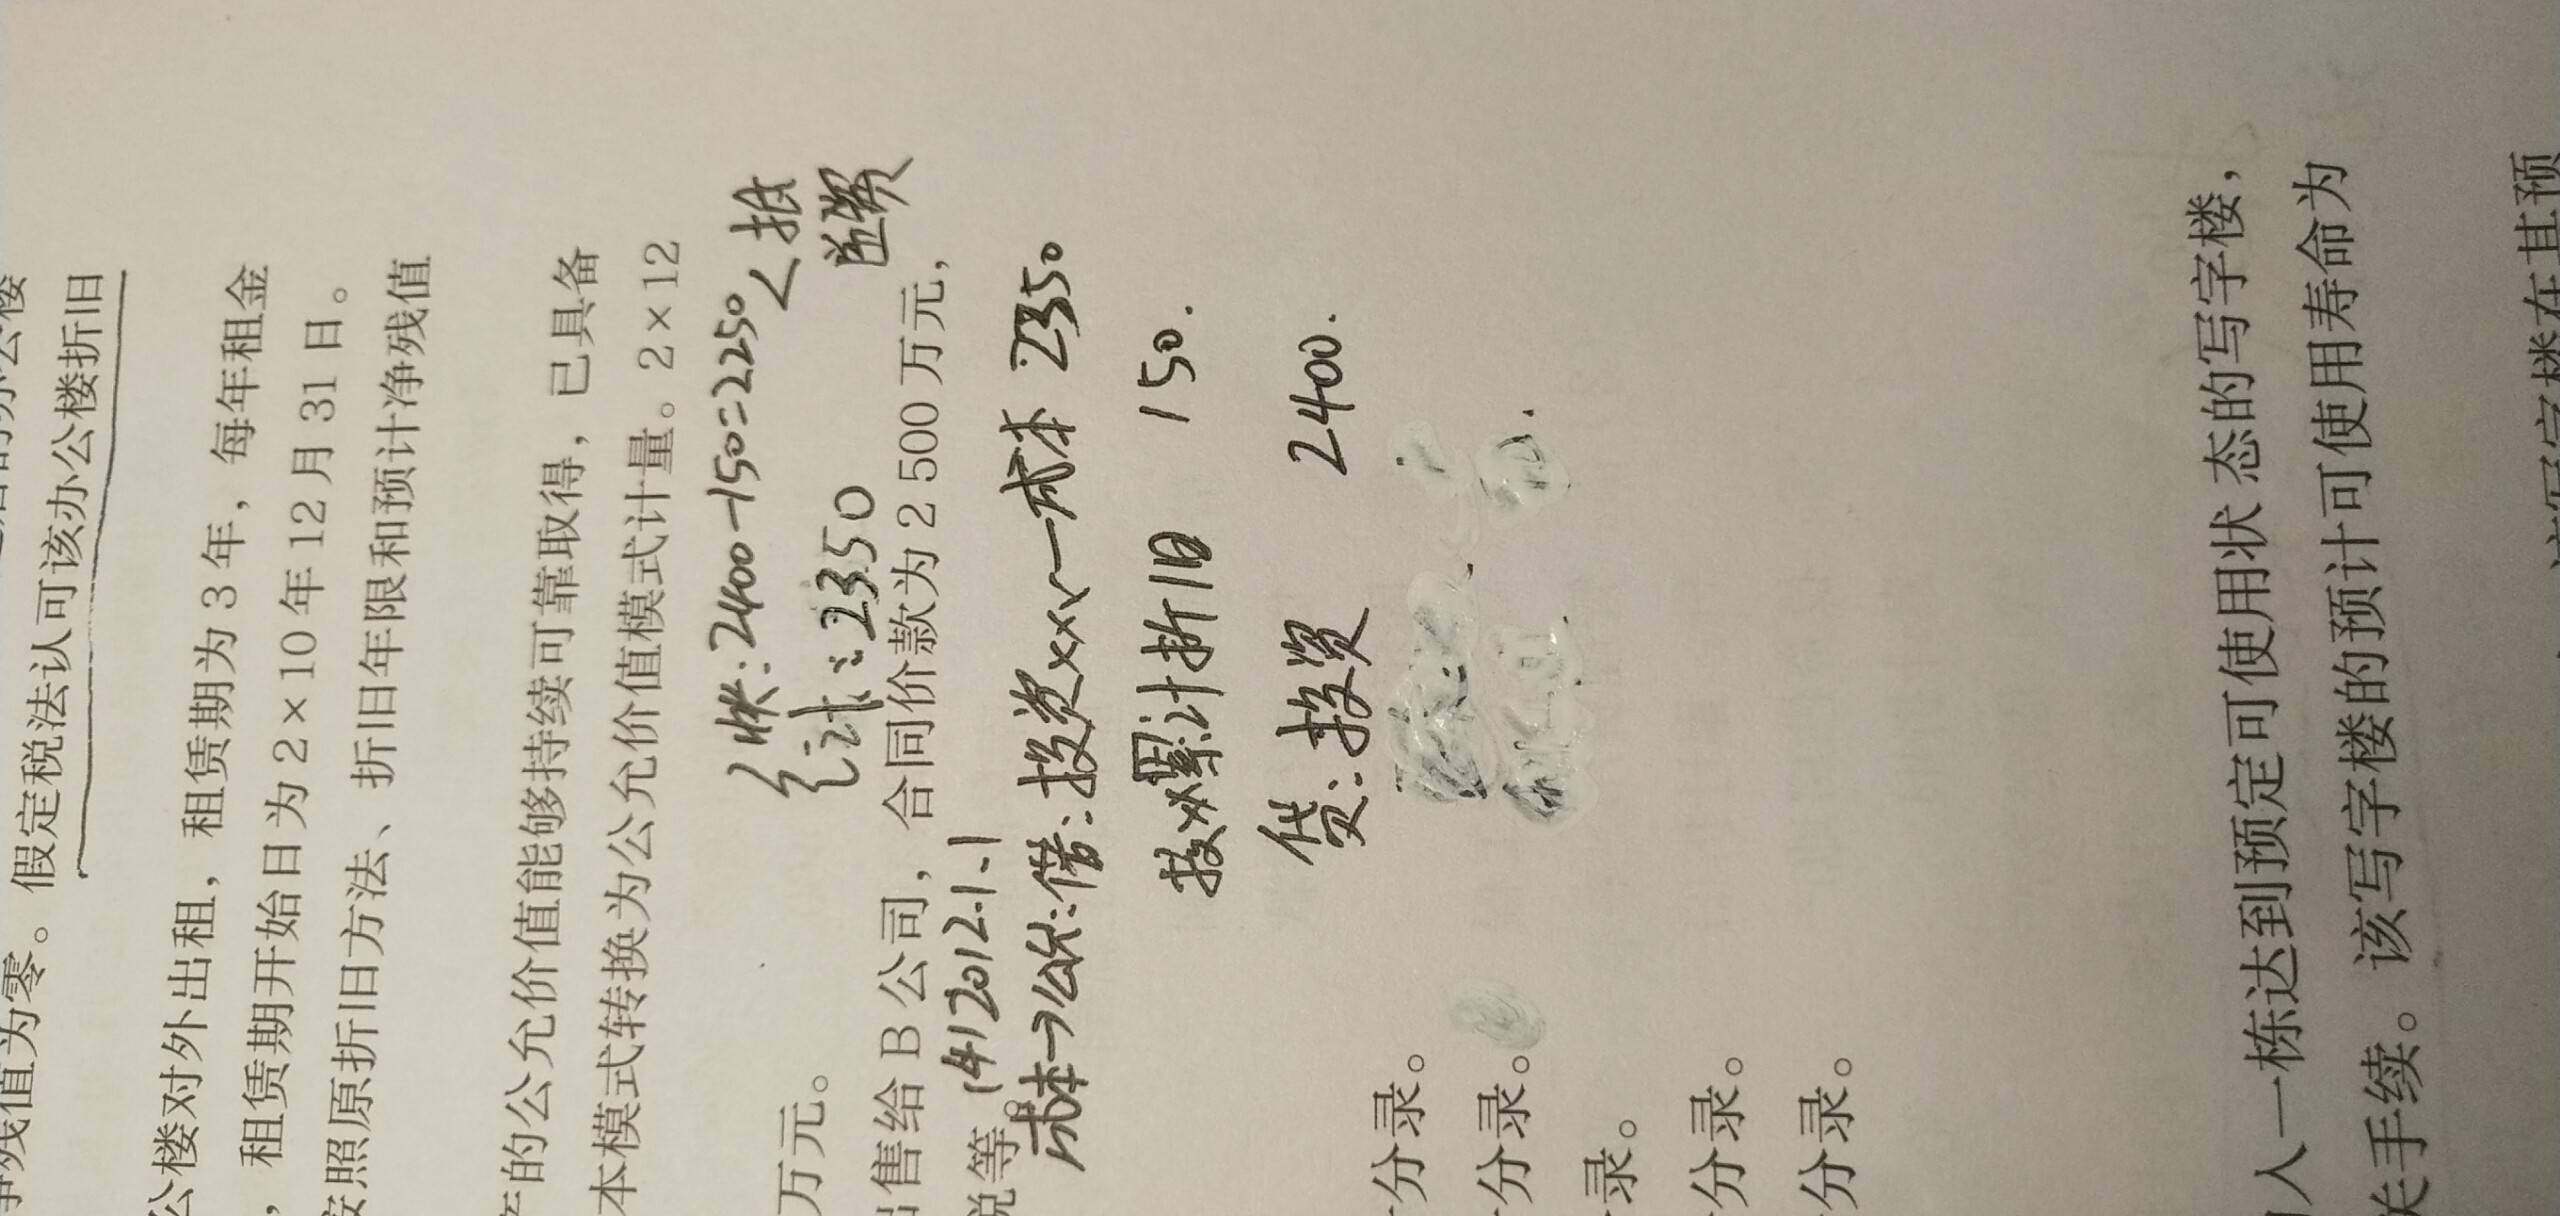 净残值为零。假定税法认可该办公楼折旧
公楼对外出租，租赁期为3年，每年租金
，租赁期开始日为2×10年12月31日。
按照原折旧方法、折旧年限和预计净残值
的公允价值能够持续可靠取得，已具备
本模式转换为公允价值模式计量。2×12
账：2400-150=2250
计：2350
万元。
售给B公司，合同价款为2 500万元，
税等。
(4) 2012.1.1
成本→公允：借：投资xxx—成本 2350
投xx累计折旧 150.
贷：投资 2400.
分录。
分录。
录。
分录。
分录。
入一栋达到预定可使用状态的写字楼，
关手续。该写字楼的预计可使用寿命为
该写字楼在其预